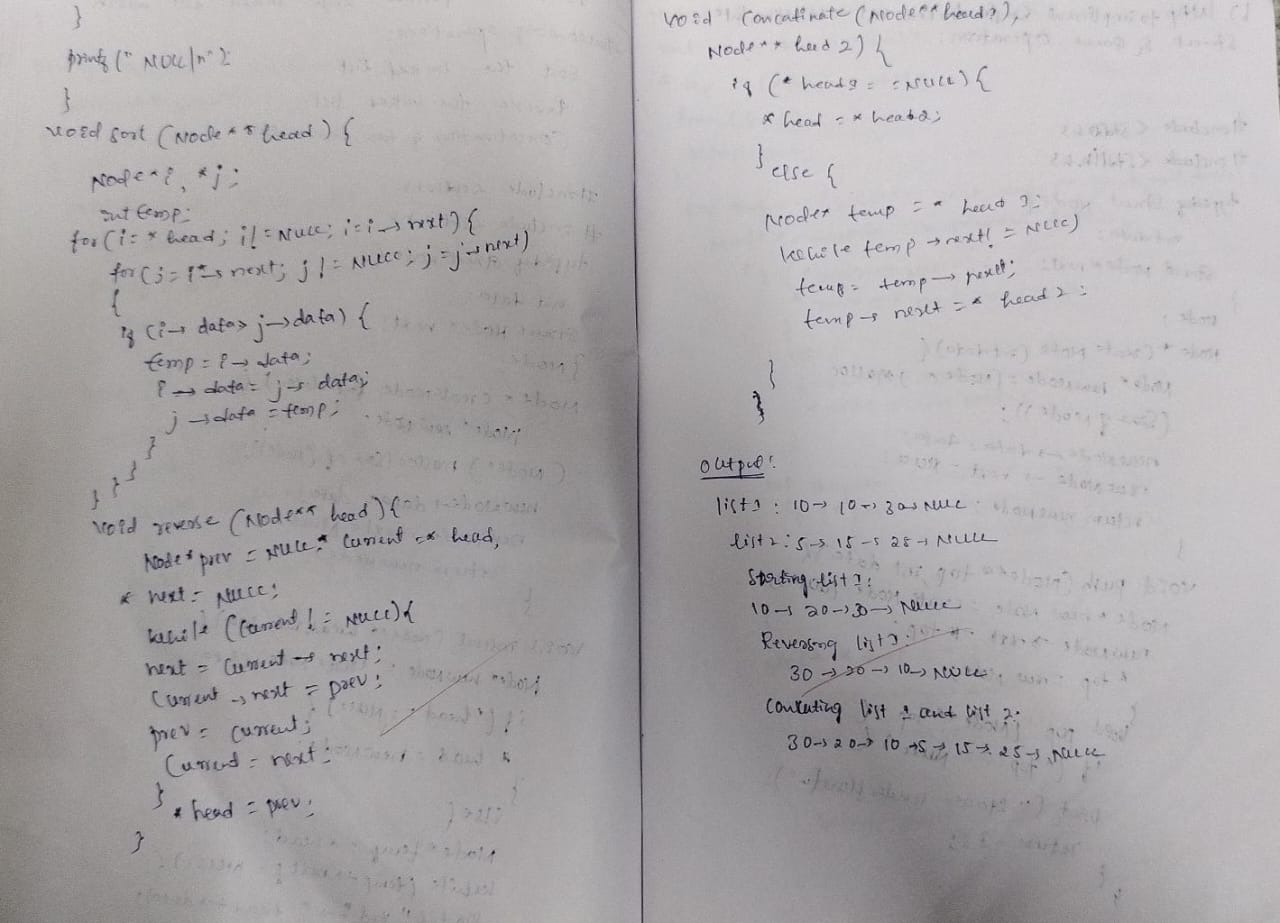 }
printf (" NULL\n");
}
void sort (Node** head) {
Node* i, *j;
int temp;
for (i = * head; i! = NULL; i=i→next) {
for (j = i→ next; j != NULL; j = j→next)
{
if (i→ data> j→data) {
temp = i → data;
i → data = j→ data;
j →data = temp;
}
}
} }
void reverse (Node** head) {
Node* prev = NULL * Current =* head,
* next = NULL;
while (Current ! = NULL) {
next = Current → next;
Current → next = prev;
prev = Current;
Current = next;
}
* head = prev;
}
void concatinate (Node** head1),
Node** head 2) {
if (* head1 = = NULL) {
* head = * head2;
}
else {
Node* temp = * head 1;
while temp → next! = NULL)
temp = temp → next;
temp → next = * head 2;
}
}
output:
list1 : 10→ 10→ 30→ NULL
list2: 5→ 15→ 25→ NULL
Storting list1:
10→ 20→30→ NULL
Reversing list1:
30 →20 → 10→ NULL
list 1 and list 2:
30→20→ 10 →5→ 15→ 25→ NULL